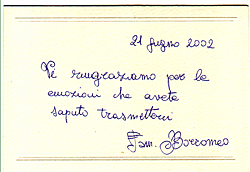 21 giugno 2002
Vi ringraziamo per le
emozioni che avete
saputo trasmetterci
Fam. Borromeo